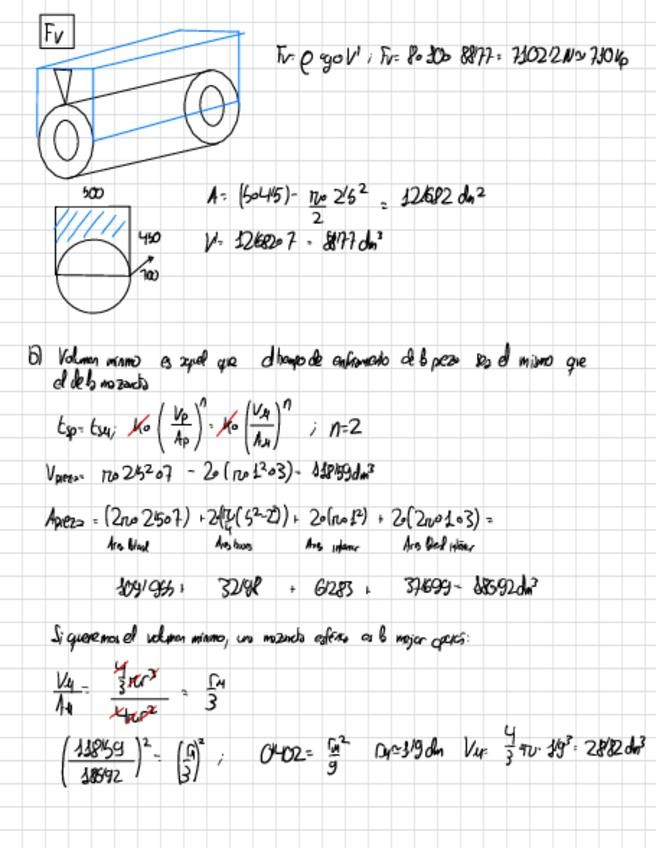 Fv
Fv = ρ · g · V ; Fv = 8 · 10 · 88'77 = 7102'2 N ≈ 710 Kp
500
450
700
A = (5·4'5) - π·2'5² / 2 = 12'682 dm²
V = 12'682·7 = 88'77 dm³
b) Volumen mínimo es aquel que el tiempo de enfriamiento de la pieza sea el mismo que
el de la mazarota
tsp = tsM; K· (Vp/Ap)ⁿ = K· (VM/AM)ⁿ ; n=2
Vpieza = π·2'5²·7 - 2·(π·1²·3) = 118'59 dm³
Apieza = (2π·2'5·7) + 2(π/4(5²-2²)) + 2·(π·1²) + 2·(2π·1·3) =
Área lateral Área Área interior Área lateral interior
109'955 + 32'98 + 6'283 + 37'699 = 185'92 dm²
Si queremos el volumen mínimo, una mazarota esférica es la mejor opción:
VM/AM = 4/3 πr³ / 4πr² = rM/3
(118'59/185'92)² = (rM/3)² ; 0'402 = rM²/9 rM ≈ 1'9 dm VM = 4/3 π · 1'9³ = 28'82 dm³